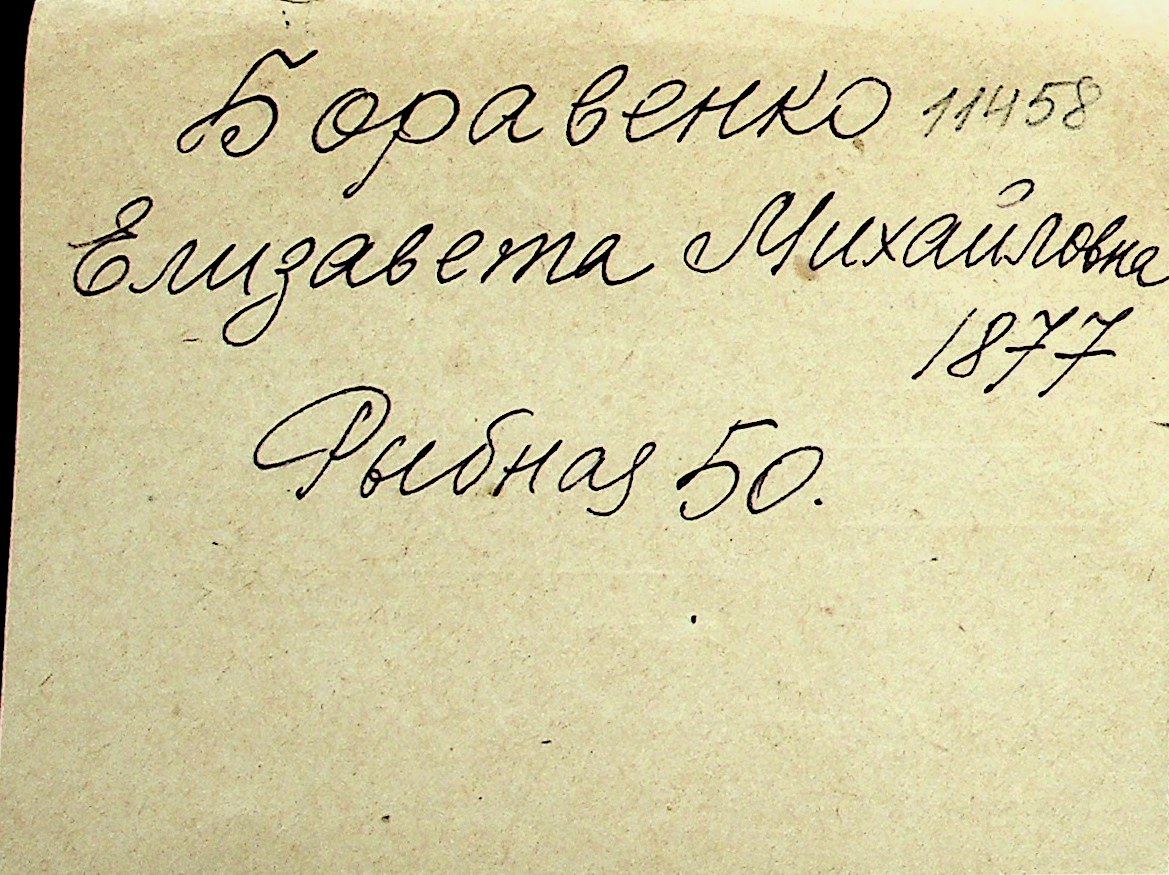 Боравенко 11458
Елизавета Михайловна
1877
Рыбная 50.